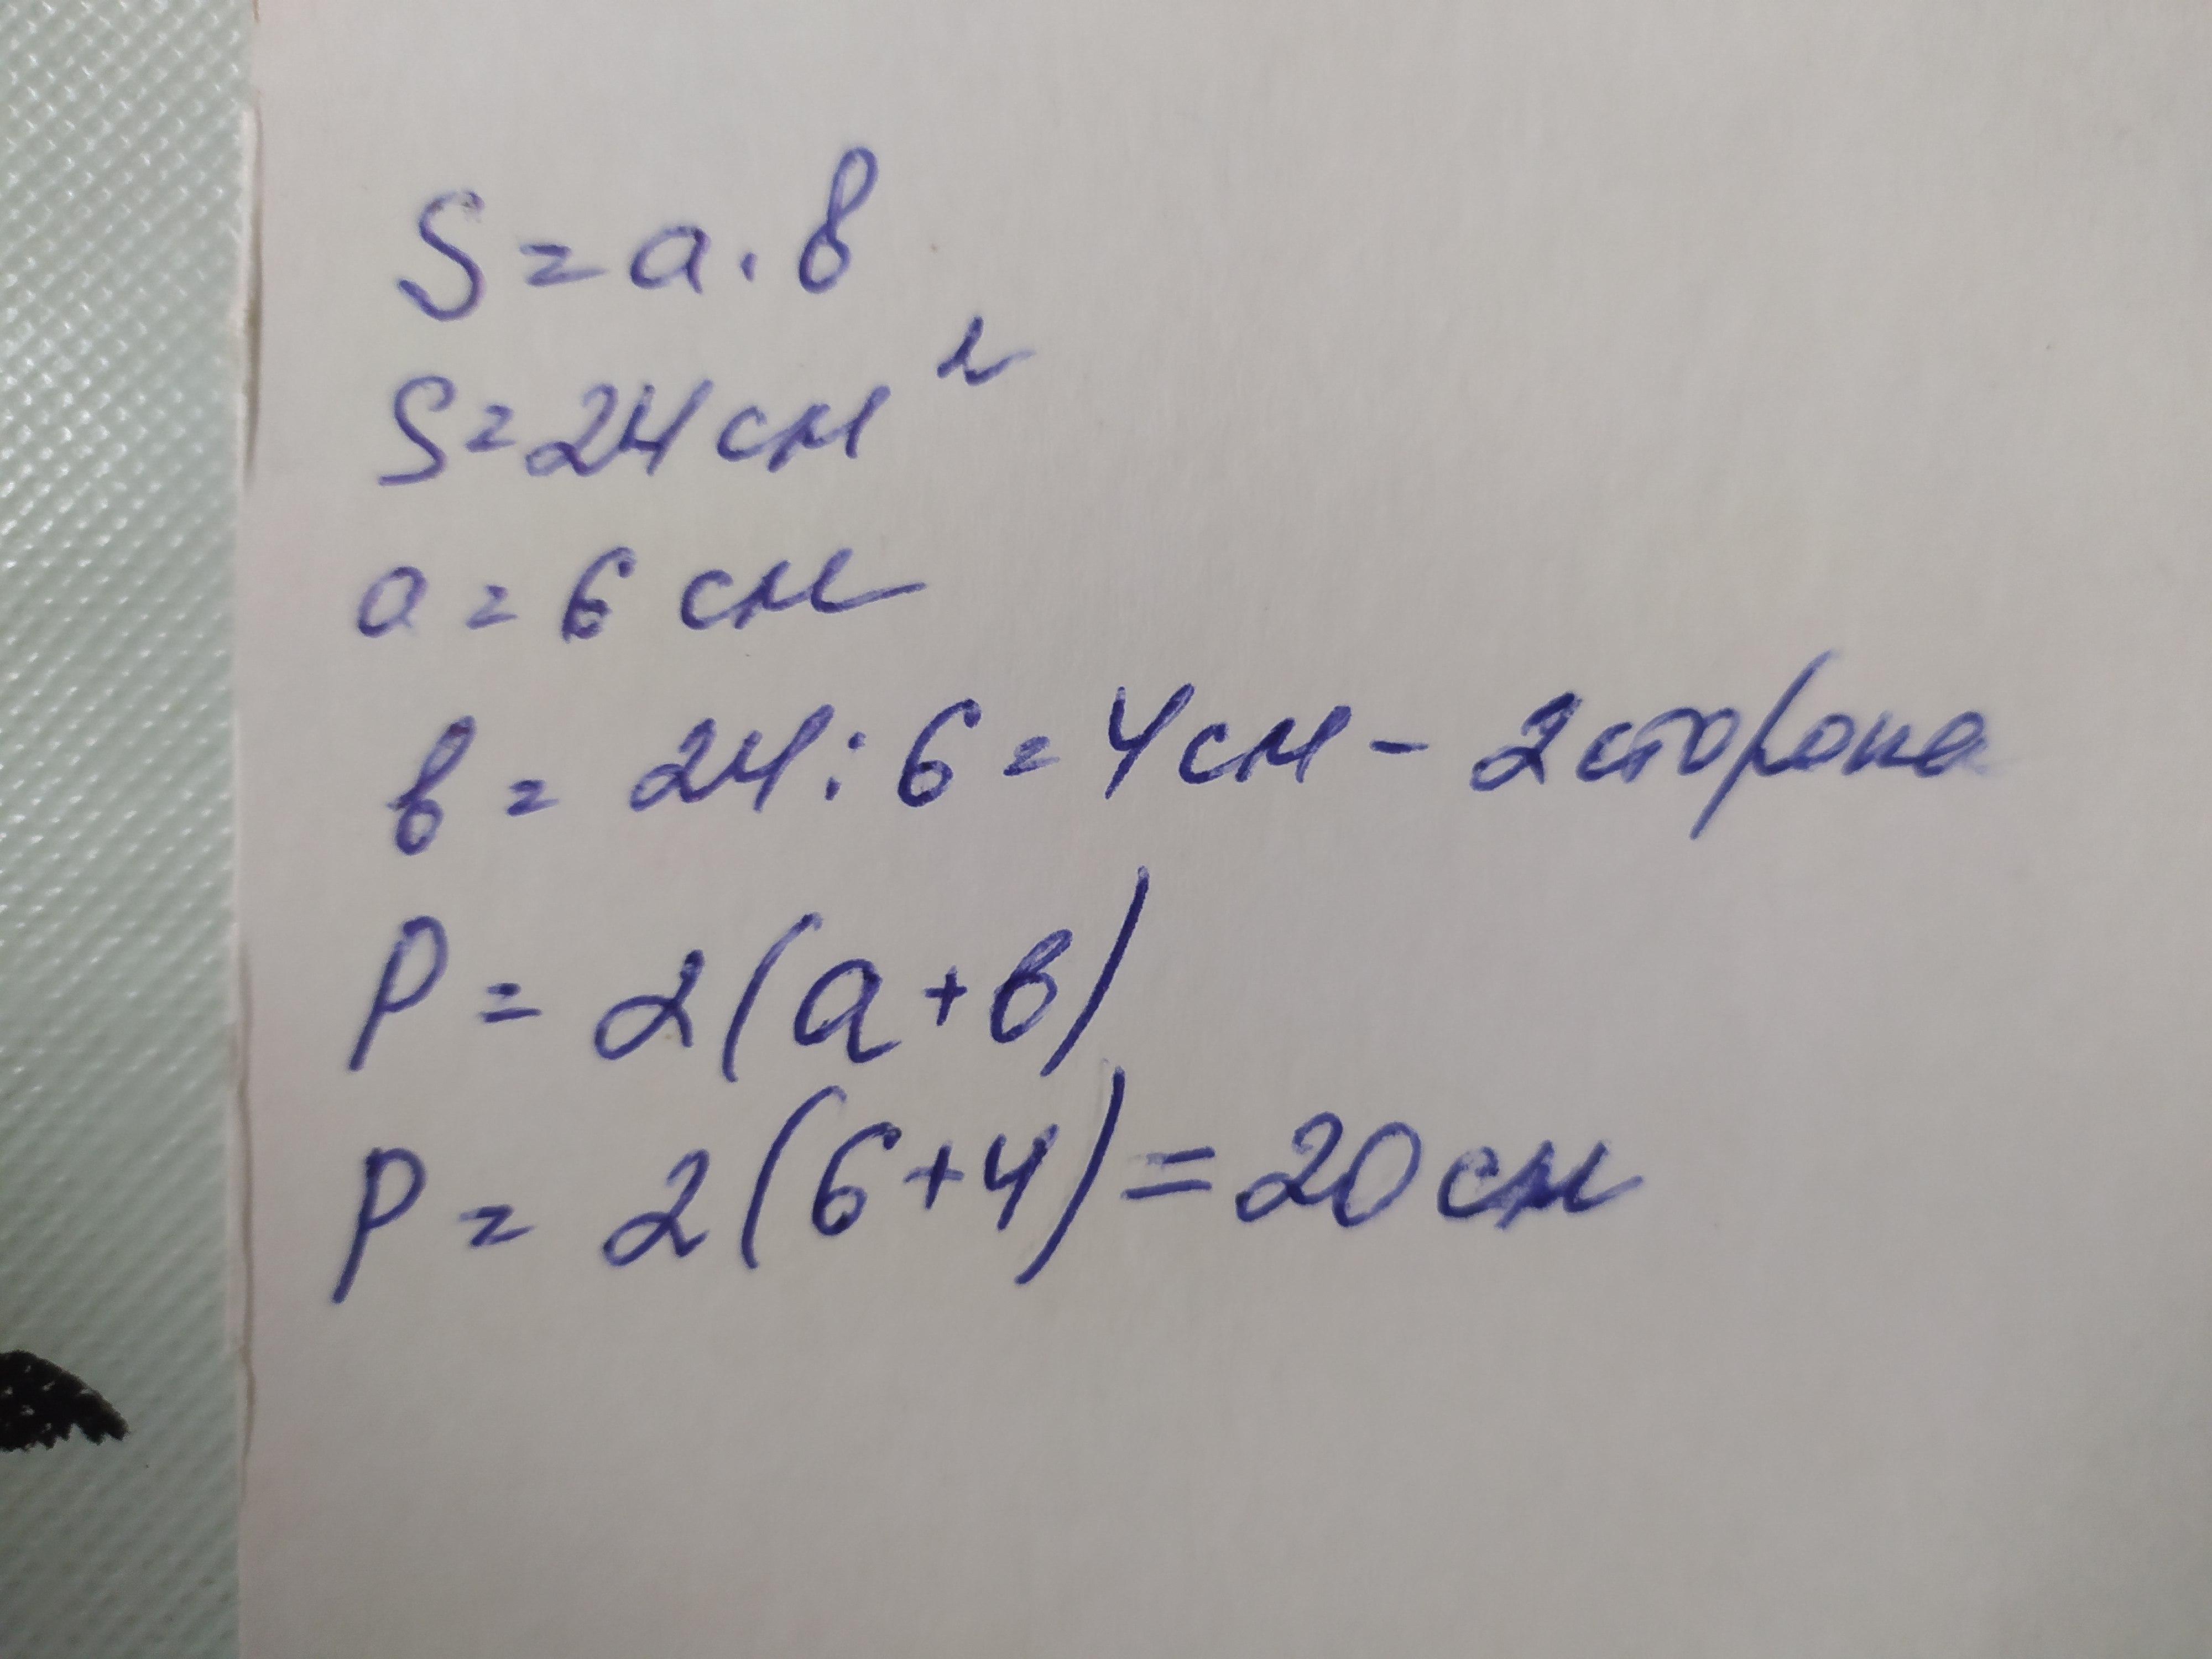 S = a · в
S = 24 см²
a = 6 см
в = 24 : 6 = 4 см - 2 сторона
P = 2 (a + в)
P = 2 (6 + 4) = 20 см